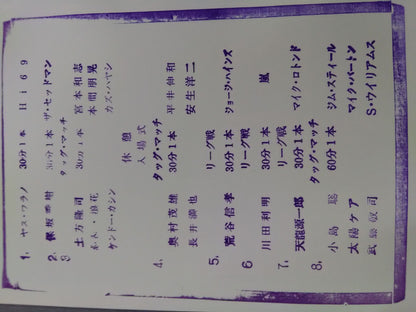 1. ヤス・ウラノ 30分1本 Hi69
2. 保坂秀樹 30分1本 ザ・セッドマン
タッグ・マッチ
3 土方隆司 30分1本 宮本和志
・浪花 本間朋晃
ケンドー・カシン カズ・ハヤシ
休憩
入場式
タッグ・マッチ
4. 奥村茂雄 30分1本 平井伸和
長井満也 安生洋二
リーグ戦
5. 荒谷信孝 30分1本 ジョージ・ハインズ
リーグ戦
6 川田利明 30分1本 嵐
リーグ戦
7. 天龍源一郎 30分1本 マイク・ロトンド
タッグ・マッチ
8. 小島聡 60分1本 ジム・スティール
太陽ケア マイク・バートン
武藤敬司 S・ウイリアムス